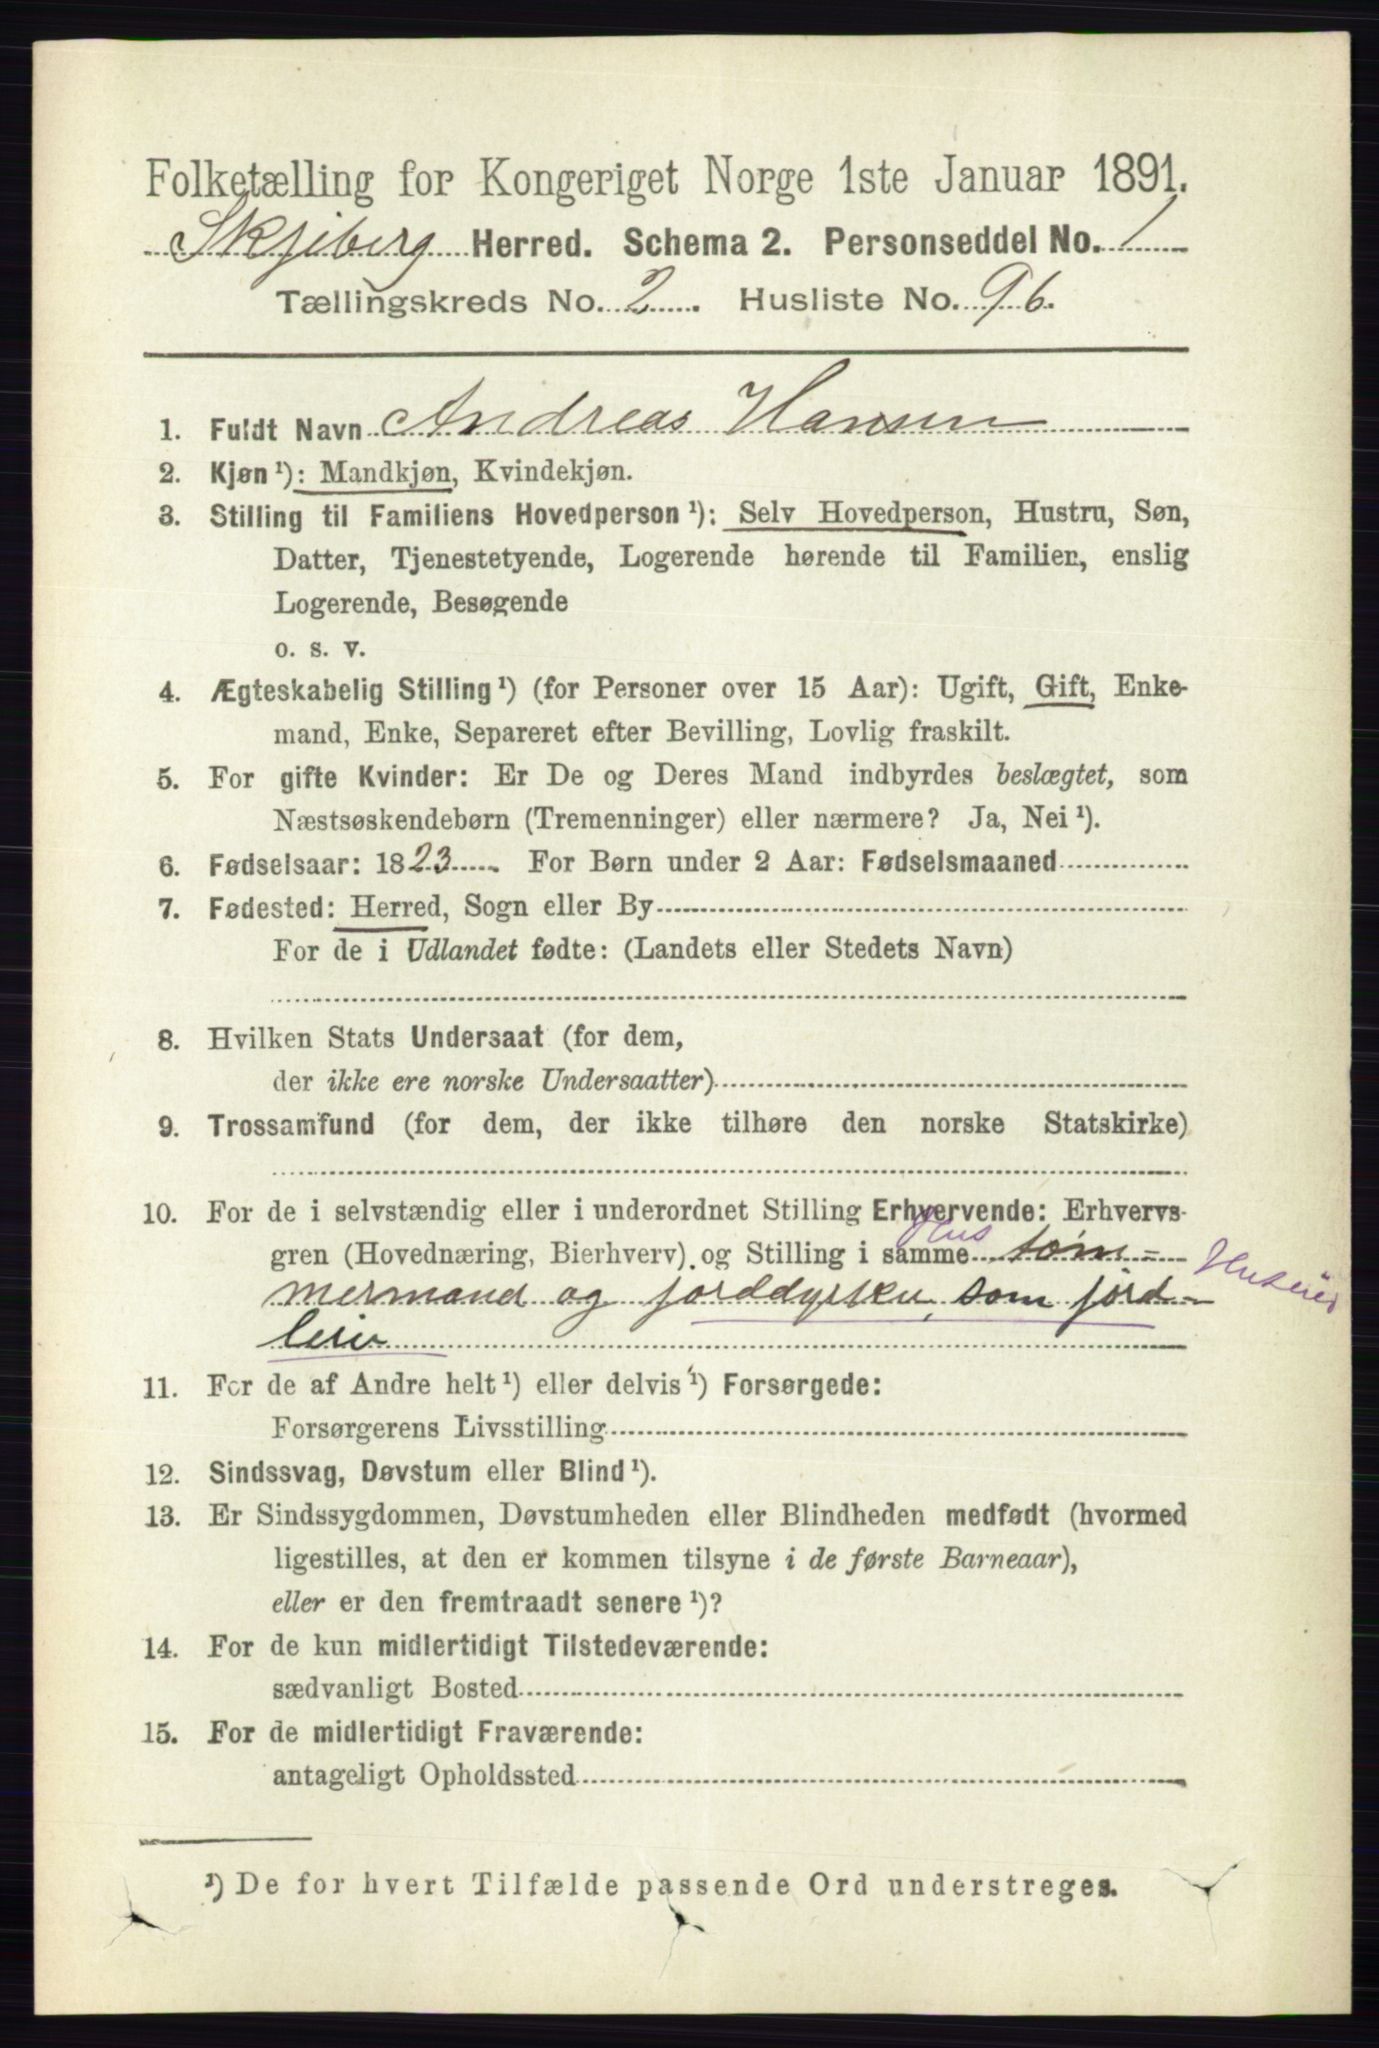 Folketælling for Kongeriget Norge 1ste Januar 1891.
Skjeberg Herred. Schema 2. Personseddel No. 1
Tællingskreds No. 2. Husliste No. 96.
1. Fuldt Navn Andreas Hansen
2. Kjøn¹): Mandkjøn, Kvindekjøn.
3. Stilling til Familiens Hovedperson¹): Selv Hovedperson, Hustru, Søn,
Datter, Tjenestetyende, Logerende hørende til Familien, enslig
Logerende, Besøgende
o. s. v.
4. Ægteskabelig Stilling¹) (for Personer over 15 Aar): Ugift, Gift, Enke-
mand, Enke, Separeret efter Bevilling, Lovlig fraskilt.
5. For gifte Kvinder: Er De og Deres Mand indbyrdes beslægtet, som
Næstsøskendebørn (Tremenninger) eller nærmere? Ja, Nei¹).
6. Fødselsaar: 1823. For Børn under 2 Aar: Fødselsmaaned
7. Fødested: Herred, Sogn eller By
For de i Udlandet fødte: (Landets eller Stedets Navn)
8. Hvilken Stats Undersaat (for dem,
der ikke ere norske Undersaatter)
9. Trossamfund (for dem, der ikke tilhøre den norske Statskirke)
10. For de i selvstændig eller i underordnet Stilling Erhvervende: Erhvervs-
gren (Hovednæring, Bierhverv) og Stilling i samme Hus tøm=
mermand og jorddyrker, som jord-
leier
11. For de af Andre helt¹) eller delvis¹) Forsørgede:
Forsørgerens Livsstilling
12. Sindssvag, Døvstum eller Blind¹).
13. Er Sindssygdommen, Døvstumheden eller Blindheden medfødt (hvormed
ligestilles, at den er kommen tilsyne i de første Barneaar),
eller er den fremtraadt senere¹)?
14. For de kun midlertidigt Tilstedeværende:
sædvanligt Bosted
15. For de midlertidigt Fraværende:
antageligt Opholdssted
¹) De for hvert Tilfælde passende Ord understreges.